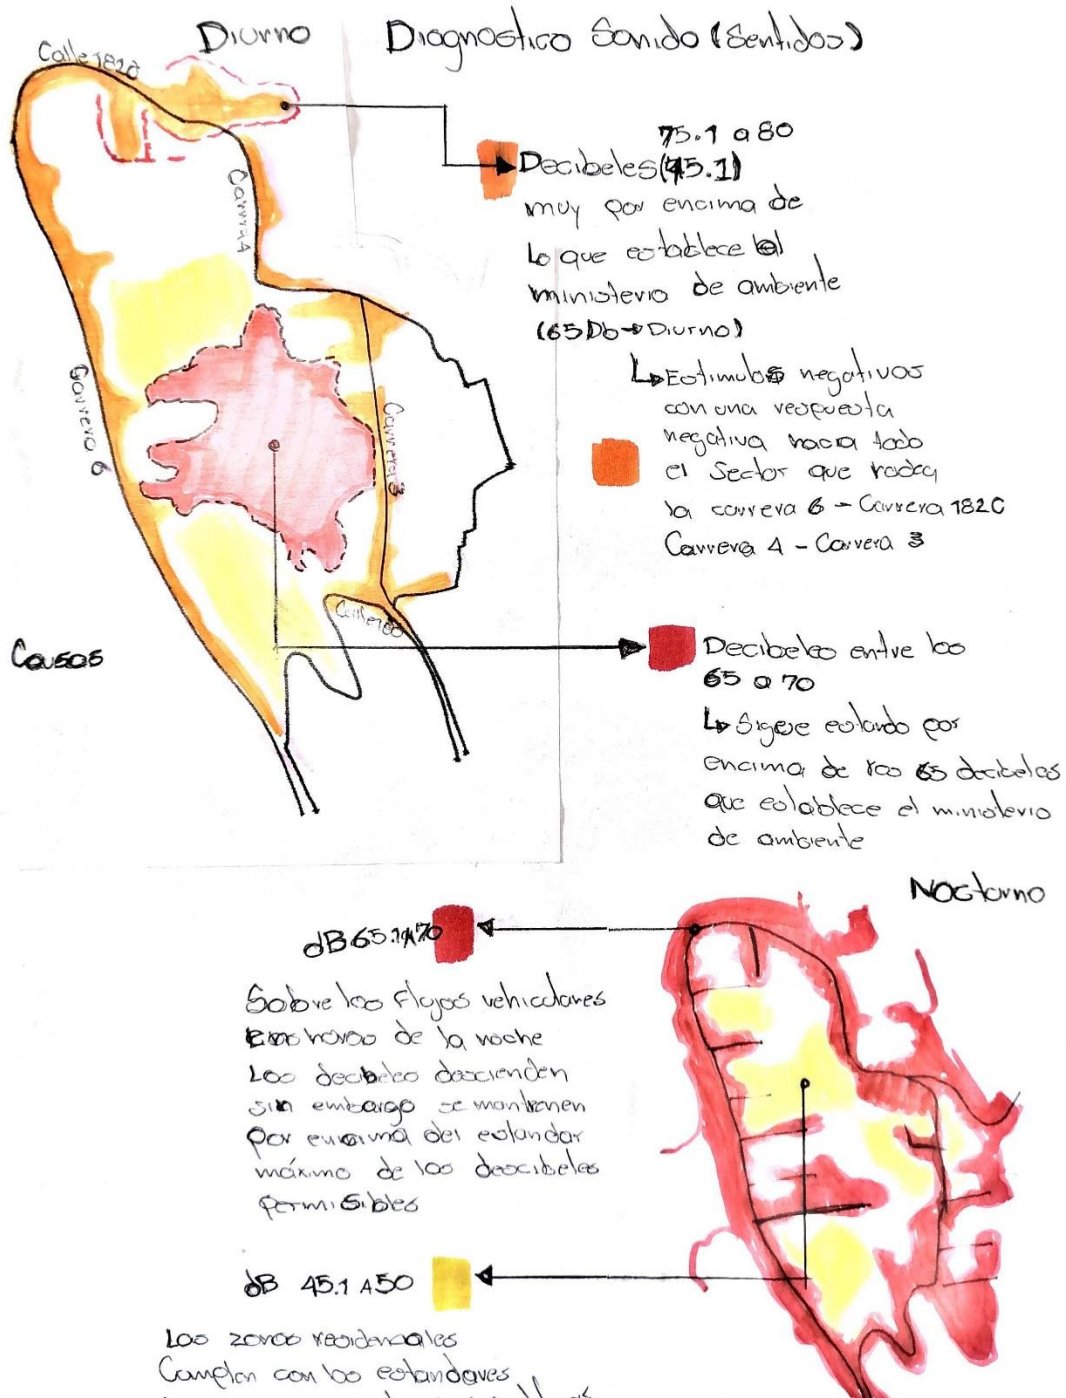 Diurno
Diagnostico Sonido (Sentidos)
Calle 182a
Carrera 4
Carrera 6
Carrera 3
75.1 a 80
Decibeles (45.1)
muy por encima de
Lo que establece el
ministerio de ambiente
(65 Db → Diurno)
↳ Estimulos negativos
con una respuesta
negativa hacia todo
el Sector que rodea
la carrera 6 - Carrera 182C
Carrera 4 - Carrera 3
Calle 180
Causas
Decibeles entre los
65 a 70
↳ Sigue estando por
encima de los 65 decibeles
que establece el ministerio
de ambiente
Nocturno
dB 65.1 A 70
Sobre los Flujos vehiculares
En horas de la noche
Los decibeles descienden
sin embargo se mantienen
por encima del estandar
máximo de los descibeles
permisibles
dB 45.1 A 50
Los zonas residenciales
Cumplen con los estandares